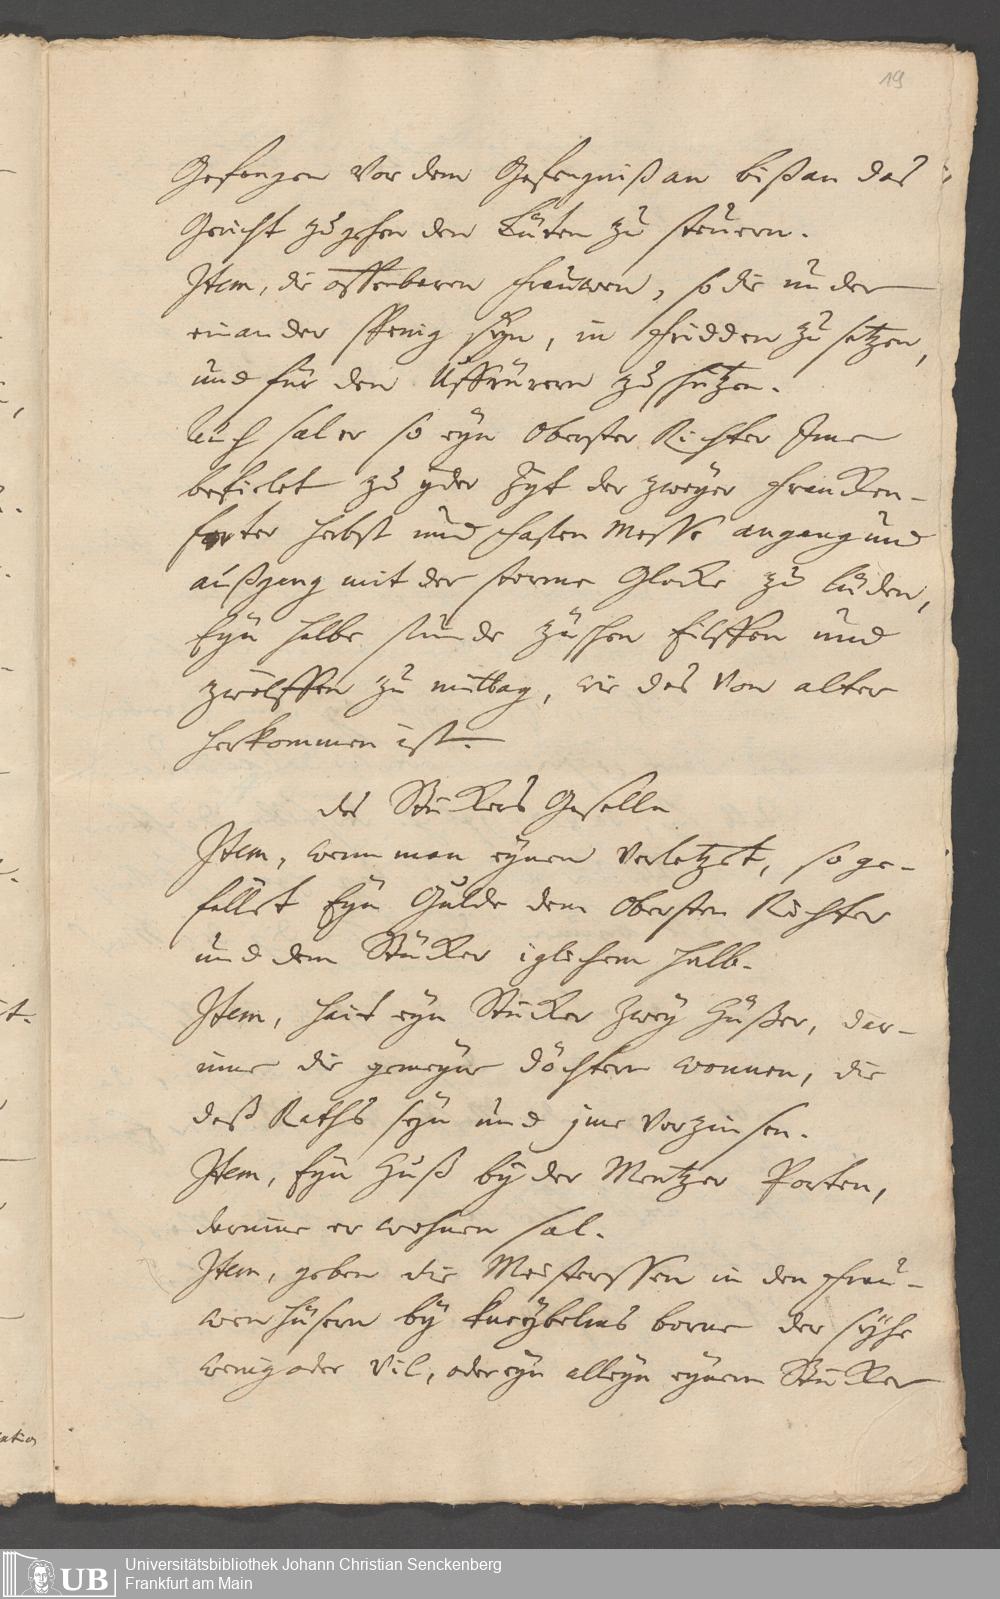 19
Gefengen vor dem Gefengniß an biß an das
Gericht zu gehen den Lüten zu steuern.
Item, die offenbaren frauwen, so die under
einander spenig syn, in fridden zu setzen,
und für den Uffrürern zu schützen.
Auch sal er so eyn Oberster Richter Ime
befielet zu yder Zyt der zweyer Francken-
forter herbst und fasten Messe angang und
außgang mit der storme Glocke zu lüden,
Eyn halbe stunde züschen Eilffen und
zwölffen zu mittag, wie das von alter
herkommen ist.
des Stückers Geselle
Item, wenn man eynen verletzet, so ge-
fellet Eyn Gulde dem Obersten Richter
und dem Stücker iglichem halb.
Item, hait eyn Stücker zwey Hüßer, dar-
inne die gemeyne döchtern wonnen, die
deß Raths seyn und jme verzinsen.
Item, Eyn Huß by der Mentzer Porten,
darinne er wohnen sal.
Item, geben die Meisterssen in den frau-
wen hüsern by kneybelins borne der syhe
wenig oder vil, oder eyn alleyn eynem Stücker
Universitätsbibliothek Johann Christian Senckenberg
Frankfurt am Main
UB